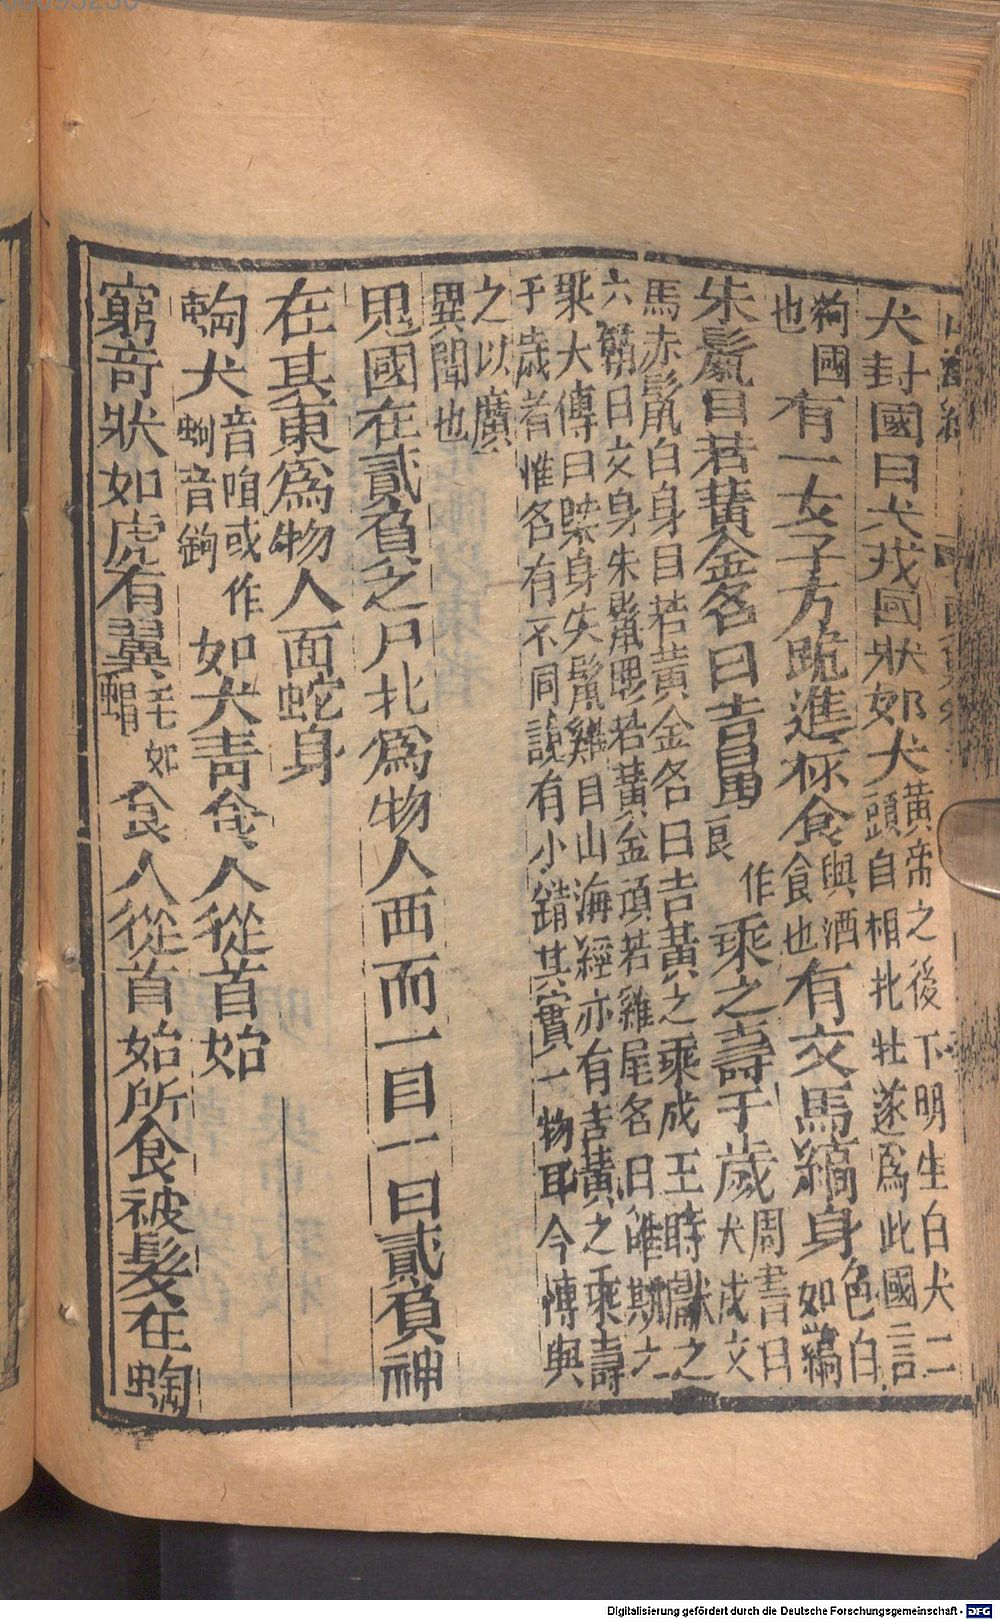 犬封國曰犬戎國狀如犬黃帝之後卞明生白犬二
頭自相牝牡遂爲此國言
狗國
也有一女子方跪進杯食與酒
食也有文馬縞身色白
如縞
朱鬣目若黃金名曰吉量一作
良乘之壽千歲周書曰
犬戎文
馬赤鬣白身目若黃金名曰吉黃之乘成王時獻之
六韜曰文身朱鬣眼若黃金項若雞尾名曰雞斯之
乘大傳曰駮身朱鬣雞目山海經亦有吉黃之乘壽
千歲者惟名有不同說有小錯其實一物耳今博與
之以廣
異聞也
鬼國在貳負之尸北爲物人面而一目一曰貳負神
在其東爲物人面蛇身
蜪犬音陶或作
蚼音鉤如犬青食人從首始
窮奇狀如虎有翼毛如
蝟食人從首始所食被髮在蜪
Digitalisierung gefördert durch die Deutsche Forschungsgemeinschaft - DFG